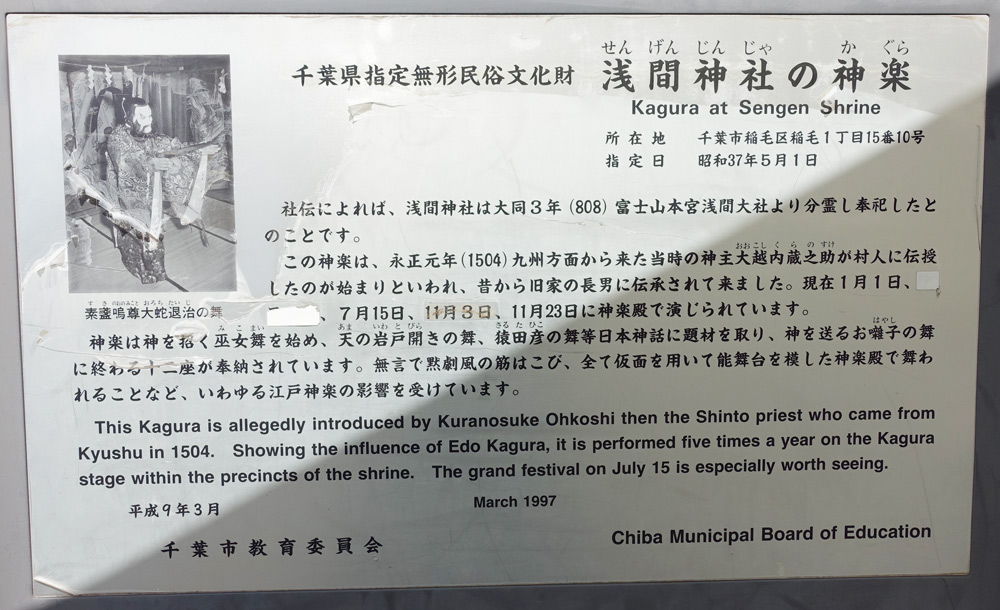 千葉県指定無形民俗文化財 浅間神社の神楽
せん げん じん じゃ か ぐら
Kagura at Sengen Shrine
所在地 千葉市稲毛区稲毛1丁目15番10号
指定日 昭和37年5月1日
社伝によれば、浅間神社は大同3年(808)富士山本宮浅間大社より分霊し奉祀したと
のことです。
この神楽は、永正元年(1504)九州方面から来た当時の神主大越内蔵之助が村人に伝授
おおこし くらのすけ
したのが始まりといわれ、昔から旧家の長男に伝承されて来ました。現在1月1日、
、7月15日、11月3日、11月23日に神楽殿で演じられています。
素盞嗚尊大蛇退治の舞
すさのおのみこと おろち たいじ
神楽は神を招く巫女舞を始め、天の岩戸開きの舞、猿田彦の舞等日本神話に題材を取り、神を送るお囃子の舞
みこまい あま いわと びら さるたひこ はやし
に終わる十二座が奉納されています。無言で黙劇風の筋はこび、全て仮面を用いて能舞台を模した神楽殿で舞わ
れることなど、いわゆる江戸神楽の影響を受けています。
This Kagura is allegedly introduced by Kuranosuke Ohkoshi then the Shinto priest who came from
Kyushu in 1504. Showing the influence of Edo Kagura, it is performed five times a year on the Kagura
stage within the precincts of the shrine. The grand festival on July 15 is especially worth seeing.
平成9年3月 March 1997
千葉市教育委員会 Chiba Municipal Board of Education